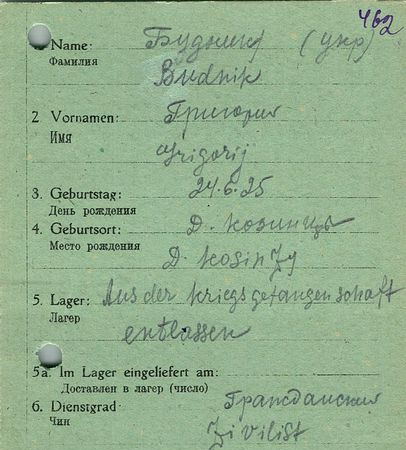 462
1 Name: Будник (укр)
Фамилия
Budnik
2 Vornamen: Григорий
Имя
Grigorij
3. Geburtstag: 24.6.25
День рождения
4. Geburtsort: Д. Козинцы
Место рождения
D. Kosinzy
5. Lager: Aus der Kriegsgefangenschaft
Лагерь
entlassen
5a. Im Lager eingeliefert am:
Доставлен в лагерь (число)
6. Dienstgrad: Гражданский
Чин
Zivilist